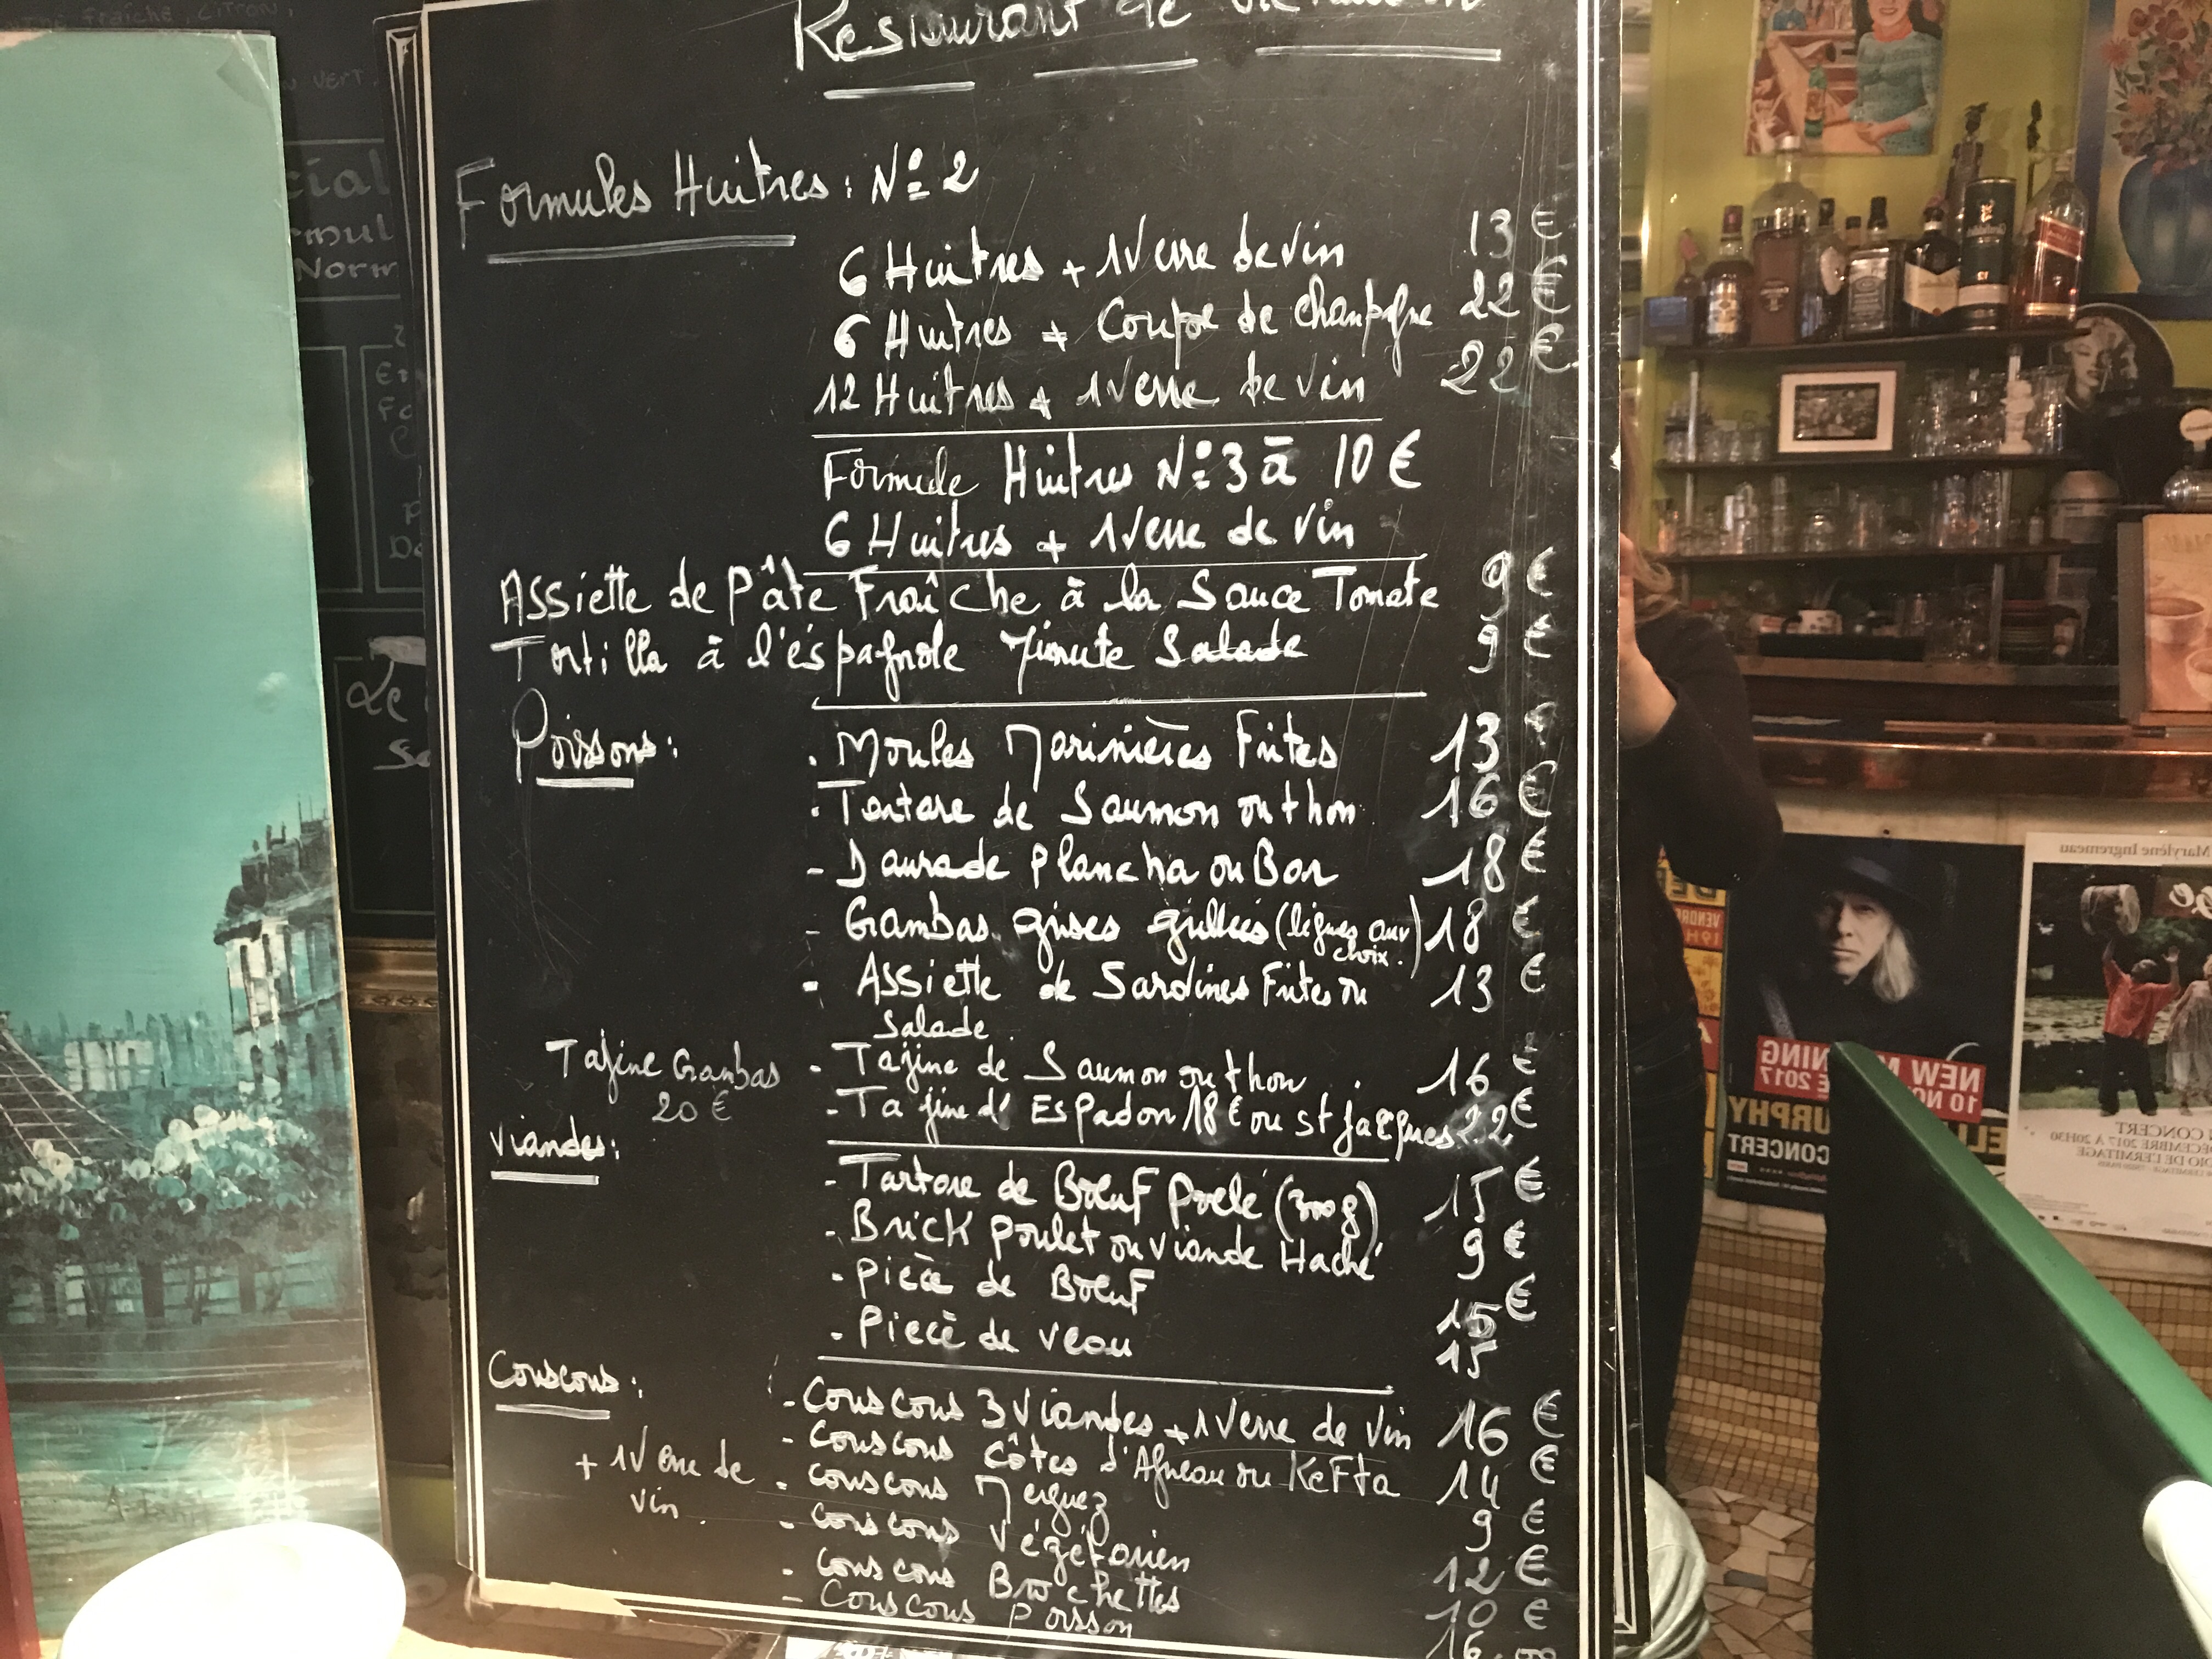 Restaurant de
Formules Huitres : N° 2
6 Huitres + 1 Verre de vin 13 €
6 Huitres + Coupe de champgne 22 €
12 Huitres + 1 Verre de vin 22 €
Formule Huitres N° 3 à 10 €
6 Huitres + 1 Verre de vin
Assiette de Pâte Fraîche à la Sauce Tomate 9 €
Tortilla à l'éspagnole Minute Salade 9 €
Poissons :
. Moules Marinières Frites 13 €
. Tartare de Saumon ou thon 16 €
- Daurade Plancha ou Bar 18 €
- Gambas grises grillées (légumes aux choix.) 18 €
- Assiette de Sardines Frites ou 13 €
Salade
Tajine Gambas
20 €
- Tajine de Saumon ou thon 16 €
- Tajine d'Espadon 18 € ou St Jacques 22 €
Viandes :
- Tartare de Bœuf Poelé (300g) 15 €
- Brick Poulet ou Viande Haché 9 €
- Piecè de Bœuf 15 €
- Piecè de Veau 15
Couscous :
- Couscous 3 Viandes + 1 Verre de vin 16 €
- Couscous Côtes d'Agneau ou Kefta 14 €
+ 1 Verre de
vin.
- Couscous Merguez 9 €
- Couscous Végétarien 12 €
- Couscous Brochettes 10 €
- Couscous Poisson 16
cial
Norm
Marylène Ingremeau
NEW MORNING
10 NOV
E 2017
ELLI URPHY
CONCERT
CONCERT
DÉCEMBRE 2017 À 20H30
DIO DE L'ERMITAGE